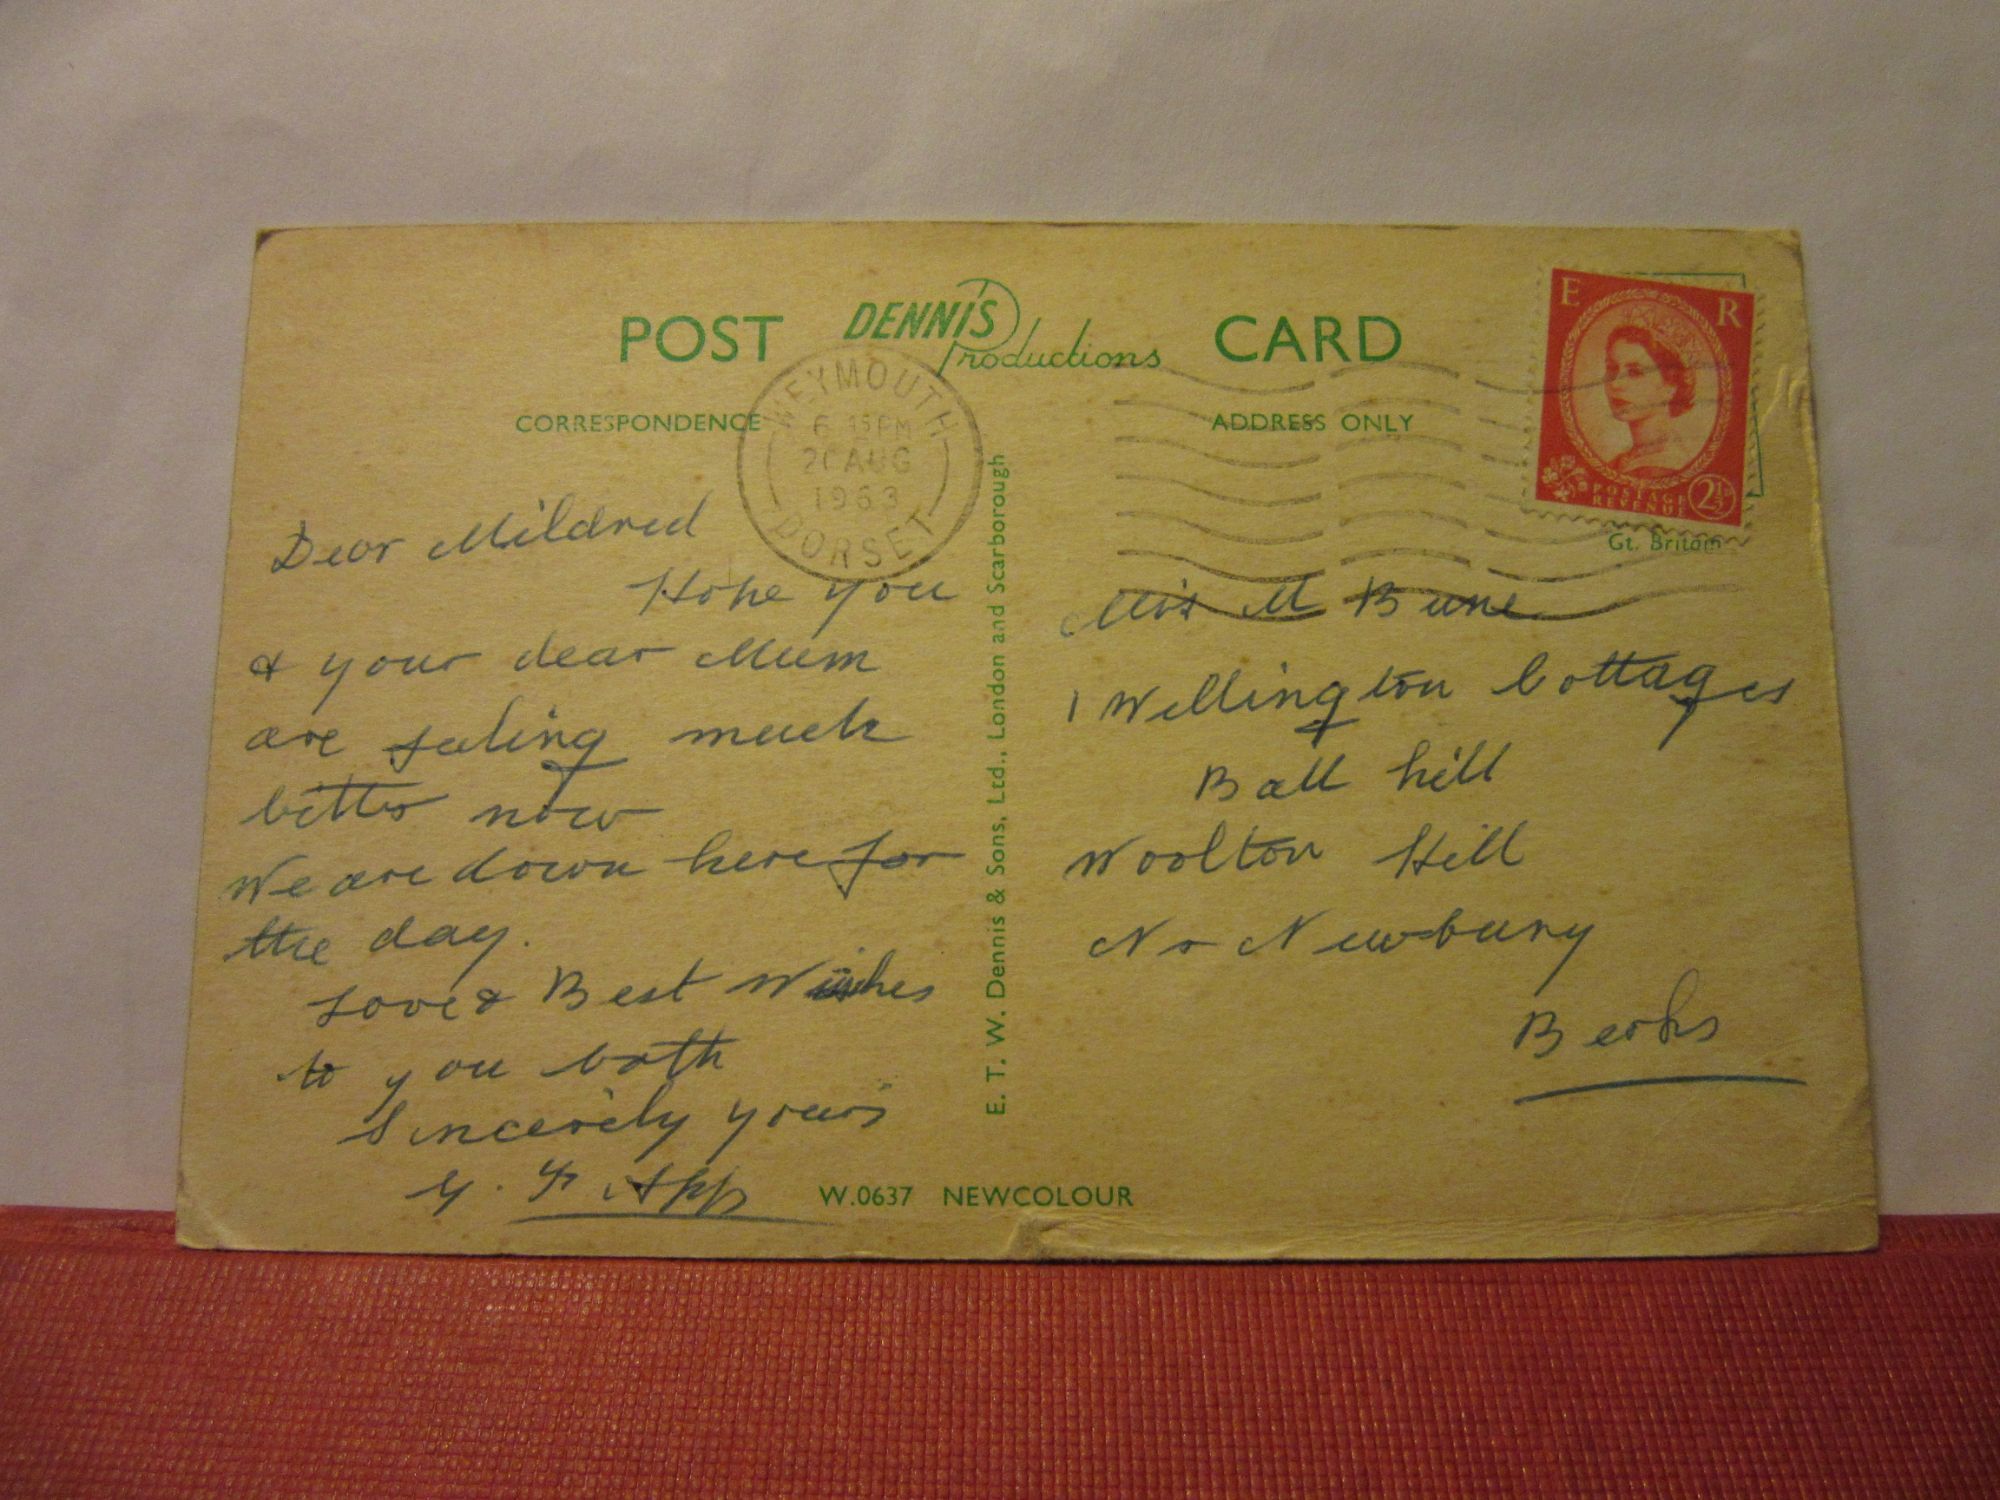 POST DENNIS Productions CARD
CORRESPONDENCE
ADDRESS ONLY
WEYMOUTH
6 15 PM
AUG
1963
DORSET
E R
POSTAGE
REVENUE
2½D
Gt. Britain
Dear Mildred
Hope you
& your dear Mum
are feeling much
better now
We are down here for
the day.
Love & Best Wishes
to you both
Sincerely yours
E. T. W. Dennis & Sons, Ltd., London and Scarborough
Miss M
1 Wellington Cottages
Ball hill
Woolton Hill
Nr Newbury
Berks
W.0637 NEWCOLOUR